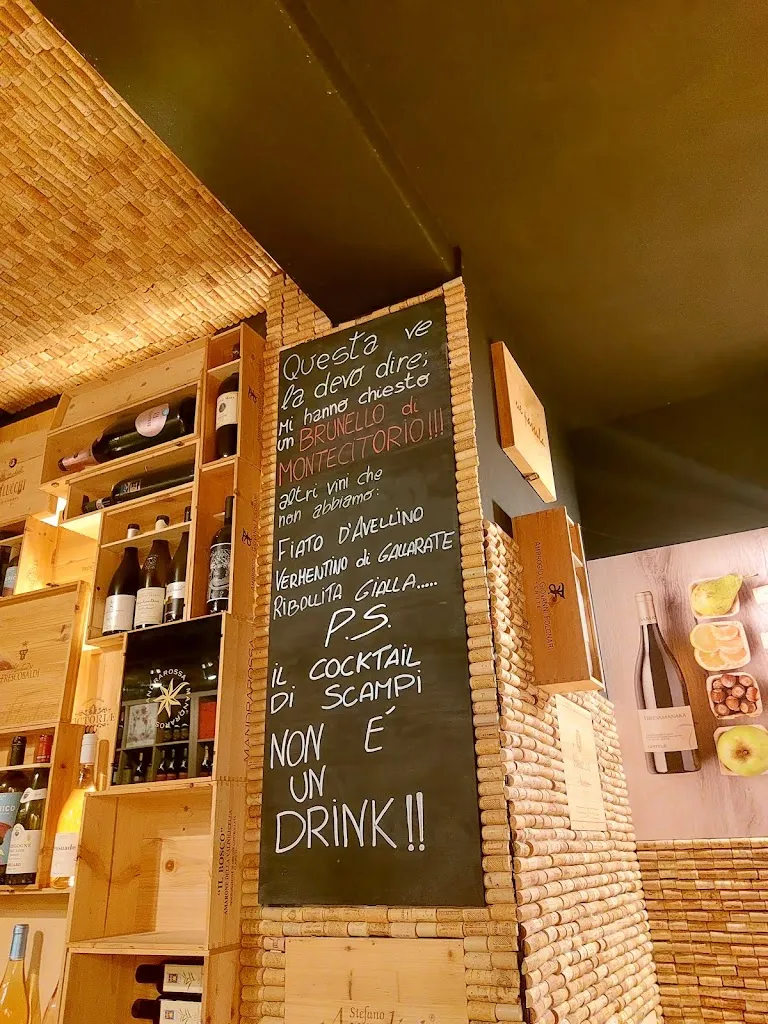 Questa ve
la devo dire;
Mi hanno chiesto
un BRUNELLO di
MONTECITORIO!!!
altri vini che
non abbiamo:
FIATO D'AVELLINO
VERMENTINO di GALLARATE
RIBOLLITA GIALLA.....
P.S.
iL COCKTAIL
DI SCAMPI
NON É
UN
DRINK!!
FRESCOBALDI
MANDRAROSSA
"IL BOSCO"
AMARONE DELLA VALPOLICELLA
Stefano